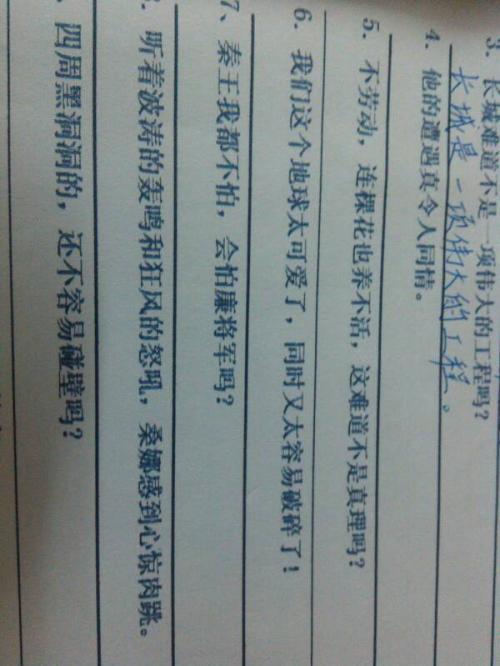 3. 长城难道不是一项伟大的工程吗?
长城是一项伟大的工程。
4. 他的遭遇真令人同情。
5. 不劳动，连棵花也养不活，这难道不是真理吗?
6. 我们这个地球太可爱了，同时又太容易破碎了!
7、秦王我都不怕，会怕廉将军吗?
听着波涛的轰鸣和狂风的怒吼，桑娜感到心惊肉跳。
四周黑洞洞的，还不容易碰壁吗?